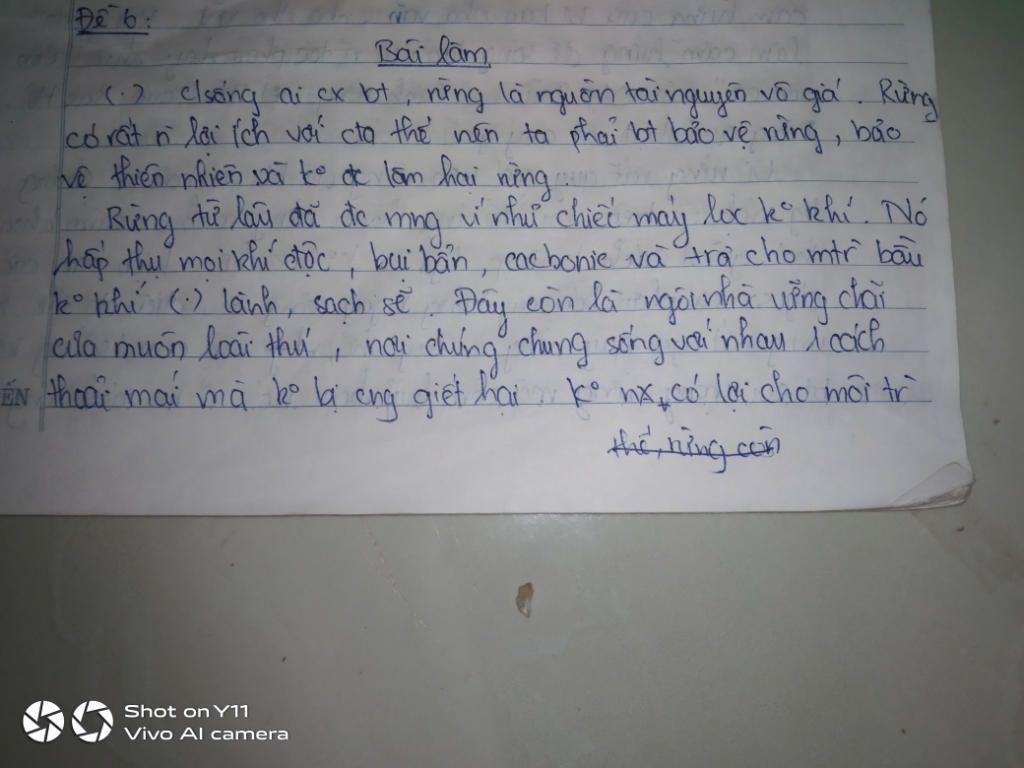 Đề 6:
Bài làm
(.) c/sống ai cx bt, rừng là nguồn tài nguyên vô giá. Rừng
có rất n lợi ích với cta thế nên ta phải bt bảo vệ rừng, bảo
vệ thiên nhiên và kº đc làm hại rừng.
Rừng từ lâu đã đc mng ví như chiếc máy lọc kº khí. Nó
hấp thụ mọi khí độc, bụi bẩn, cacbonic và trả cho mtr bầu
kº khí (.) lành, sạch sẽ. Đây còn là ngôi nhà vững chãi
của muôn loài thú, nơi chúng chung sống với nhau 1 cách
thoải mái mà kº bị cng giết hại kº nx, có lợi cho môi tr
thế, rừng còn
ẾN
Shot on Y11
Vivo AI camera